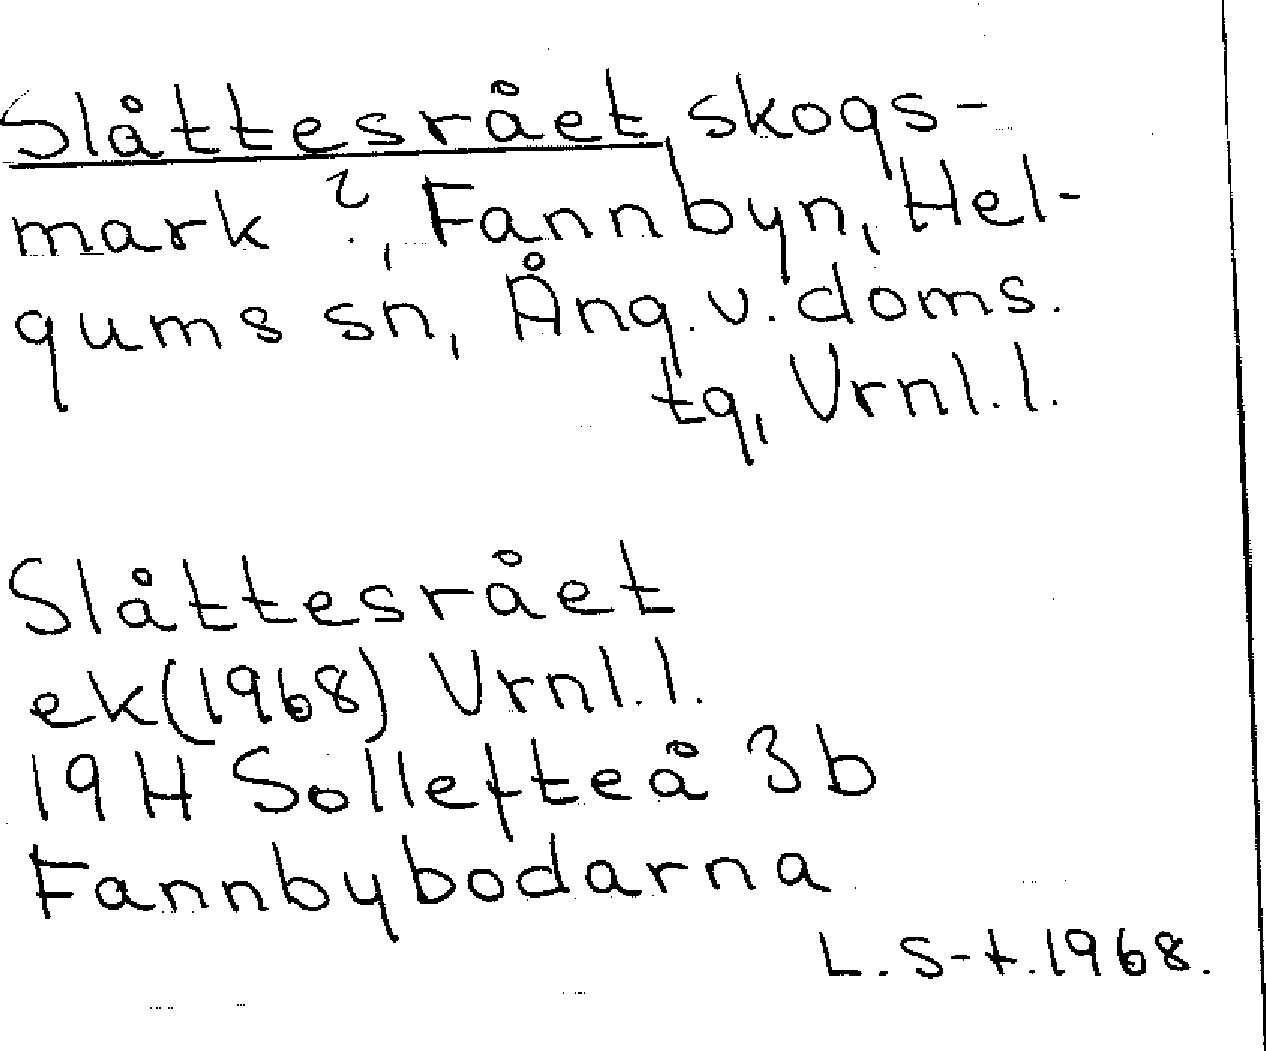 Slåttesrået, skogs-
mark ?, Fannbyn, Hel-
gums sn, Ång. v. doms.
tg, Vrnl. l.
Slåttesrået
ek(1968) Vrnl. l.
19H Sollefteå 3b
Fannbybodarna
L. S-t. 1968.